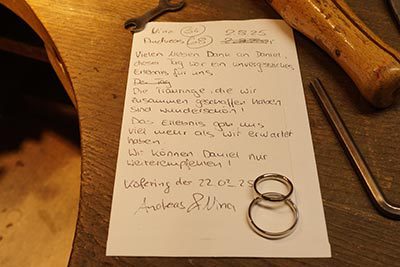 Nina 54
Andreas 58
2.8.25
Vielen lieben Dank an Daniel,
dieser Tag war ein unvergessliches
Erlebnis für uns
Der Tag
Die Trauringe, die wir
zusammen geschaffen haben
sind wunderschön!
Das Erlebnis gab uns
viel mehr als wir erwartet
haben
Wir können Daniel nur
weiterempfehlen!
Köfering der 22.02.25
Andreas & Nina